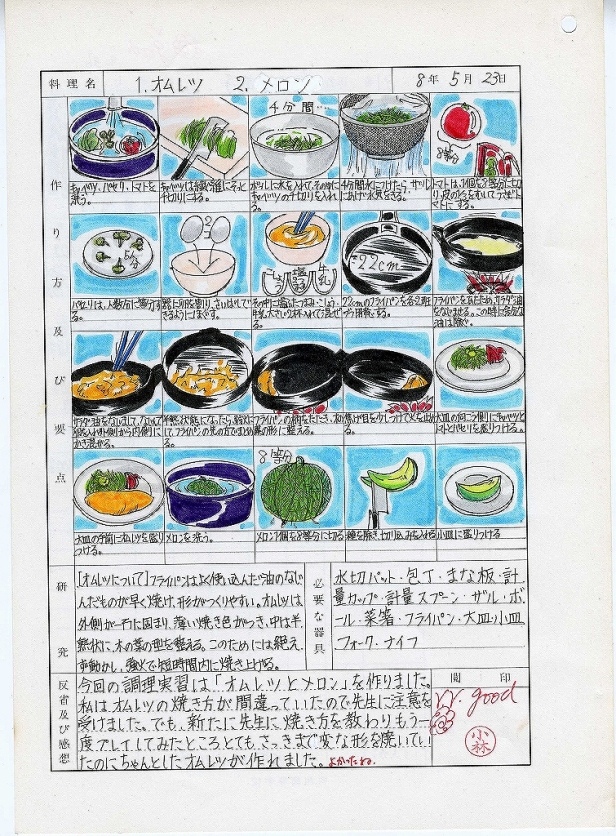 料理名 1.オムレツ 2.メロン 8年5月23日
作り方及び要点
4分間
8等分
キャベツ、パセリ、トマトを
洗う。
キャベツは
千切りにする。
ボールに水を入れて、その中に
キャベツの千切りを入れ
る。
4分間水につけたら、ザル
にあけ水気をきる。
トマトは、1個を8等分に切
トマトにする。
5人分
しょう
塩
牛乳
22cm
パセリは、人数分に等分す
る。
器に卵を割り、さいばしで
きるようにほぐす。
22cmのフライパンを各2班
フライパンをあたため、サラダ油
をなじませる。この時に余分な
油は除く。
かき混ぜる。
半熟状態になったら、
フライパンの柄をたたき、木の
葉の形に整える。
大皿の向こう側にキャベツと
トマトとパセリを盛りつける。
8等分
大皿の手前にオムレツを盛り
つける。
メロンを洗う。
メロン1個を8等分に切る
種を除き、切り込みを入れる
小皿に盛りつける
研究
[オムレツについて]フライパンはよく使い込んだ油のなじ
んだものが早く焼け、形がつくりやすい。オムレツは
外側が一戸に固まり、薄い焼き色がつき、中は半
熟状に、木の葉の型を整える。このためには絶え
ず動かし、強火で短時間内に焼き上げる。
必要な器具
水切バット・包丁・まな板・計
量カップ・計量スプーン・ザル・ボ
ール・菜箸・フライパン・大皿・小皿
フォーク・ナイフ
反省及び感想
今回の調理実習は「オムレツとメロン」を作りました。
私はオムレツの焼き方が間違っていたので先生に注意を
受けました。でも、新たに先生に焼き方を教わりもう一
度トライしてみたところとても、さっきまで変な形を焼いてい
たのにちゃんとしたオムレツが作れました。よかったね。
閲印
V. good
小林